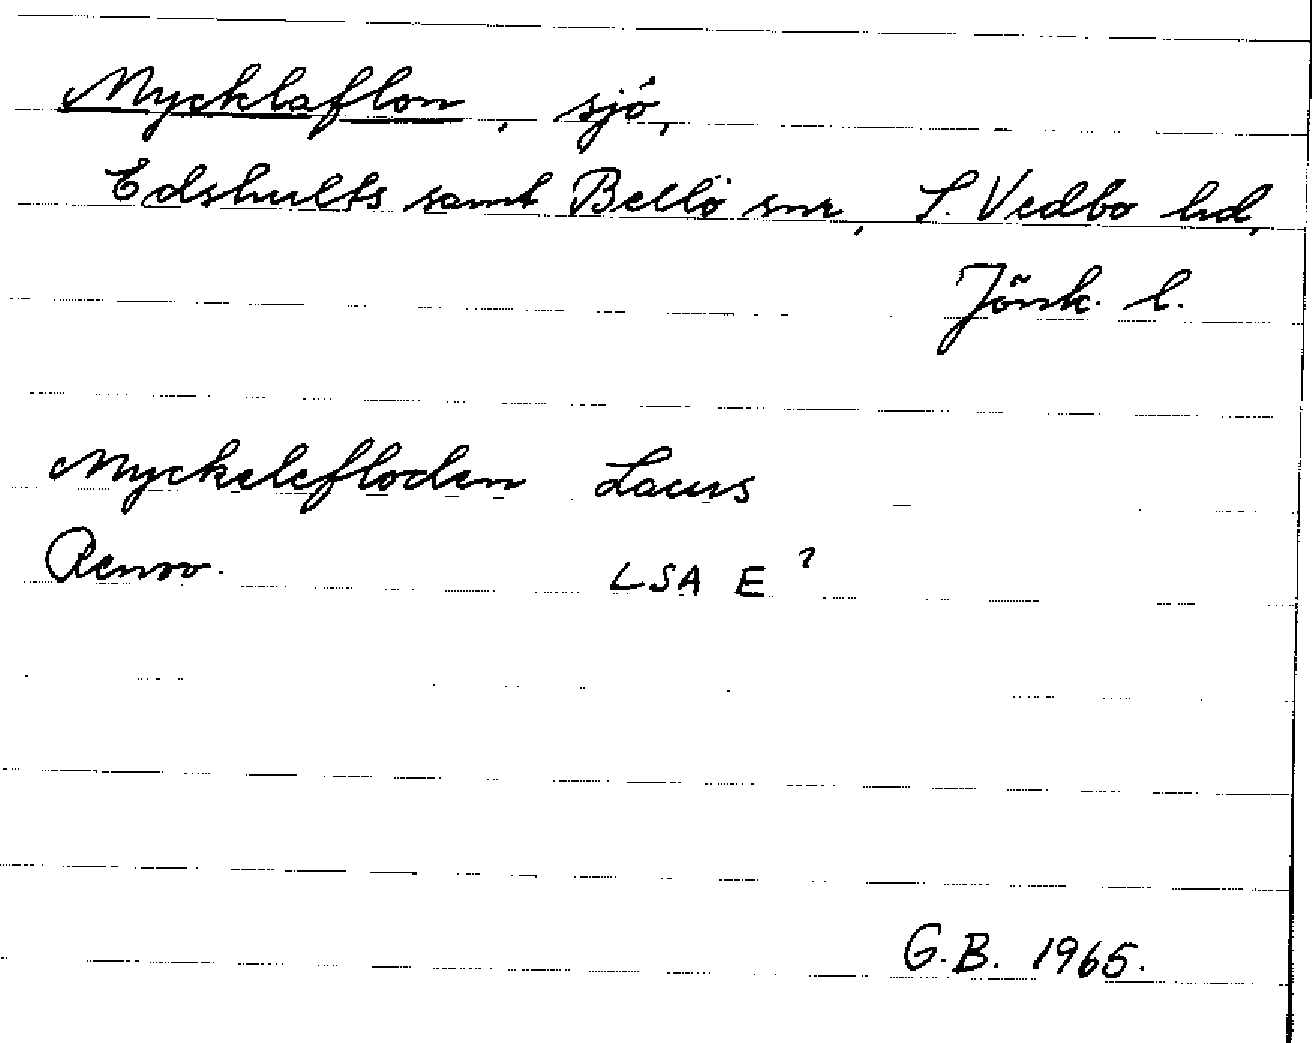 Mycklaflon, sjö,
Edshults samt Bellö snr, S. Vedbo hd,
Jönk. l.
Myckelefloden Lacus
Renov. LSA E ?
G.B. 1965.